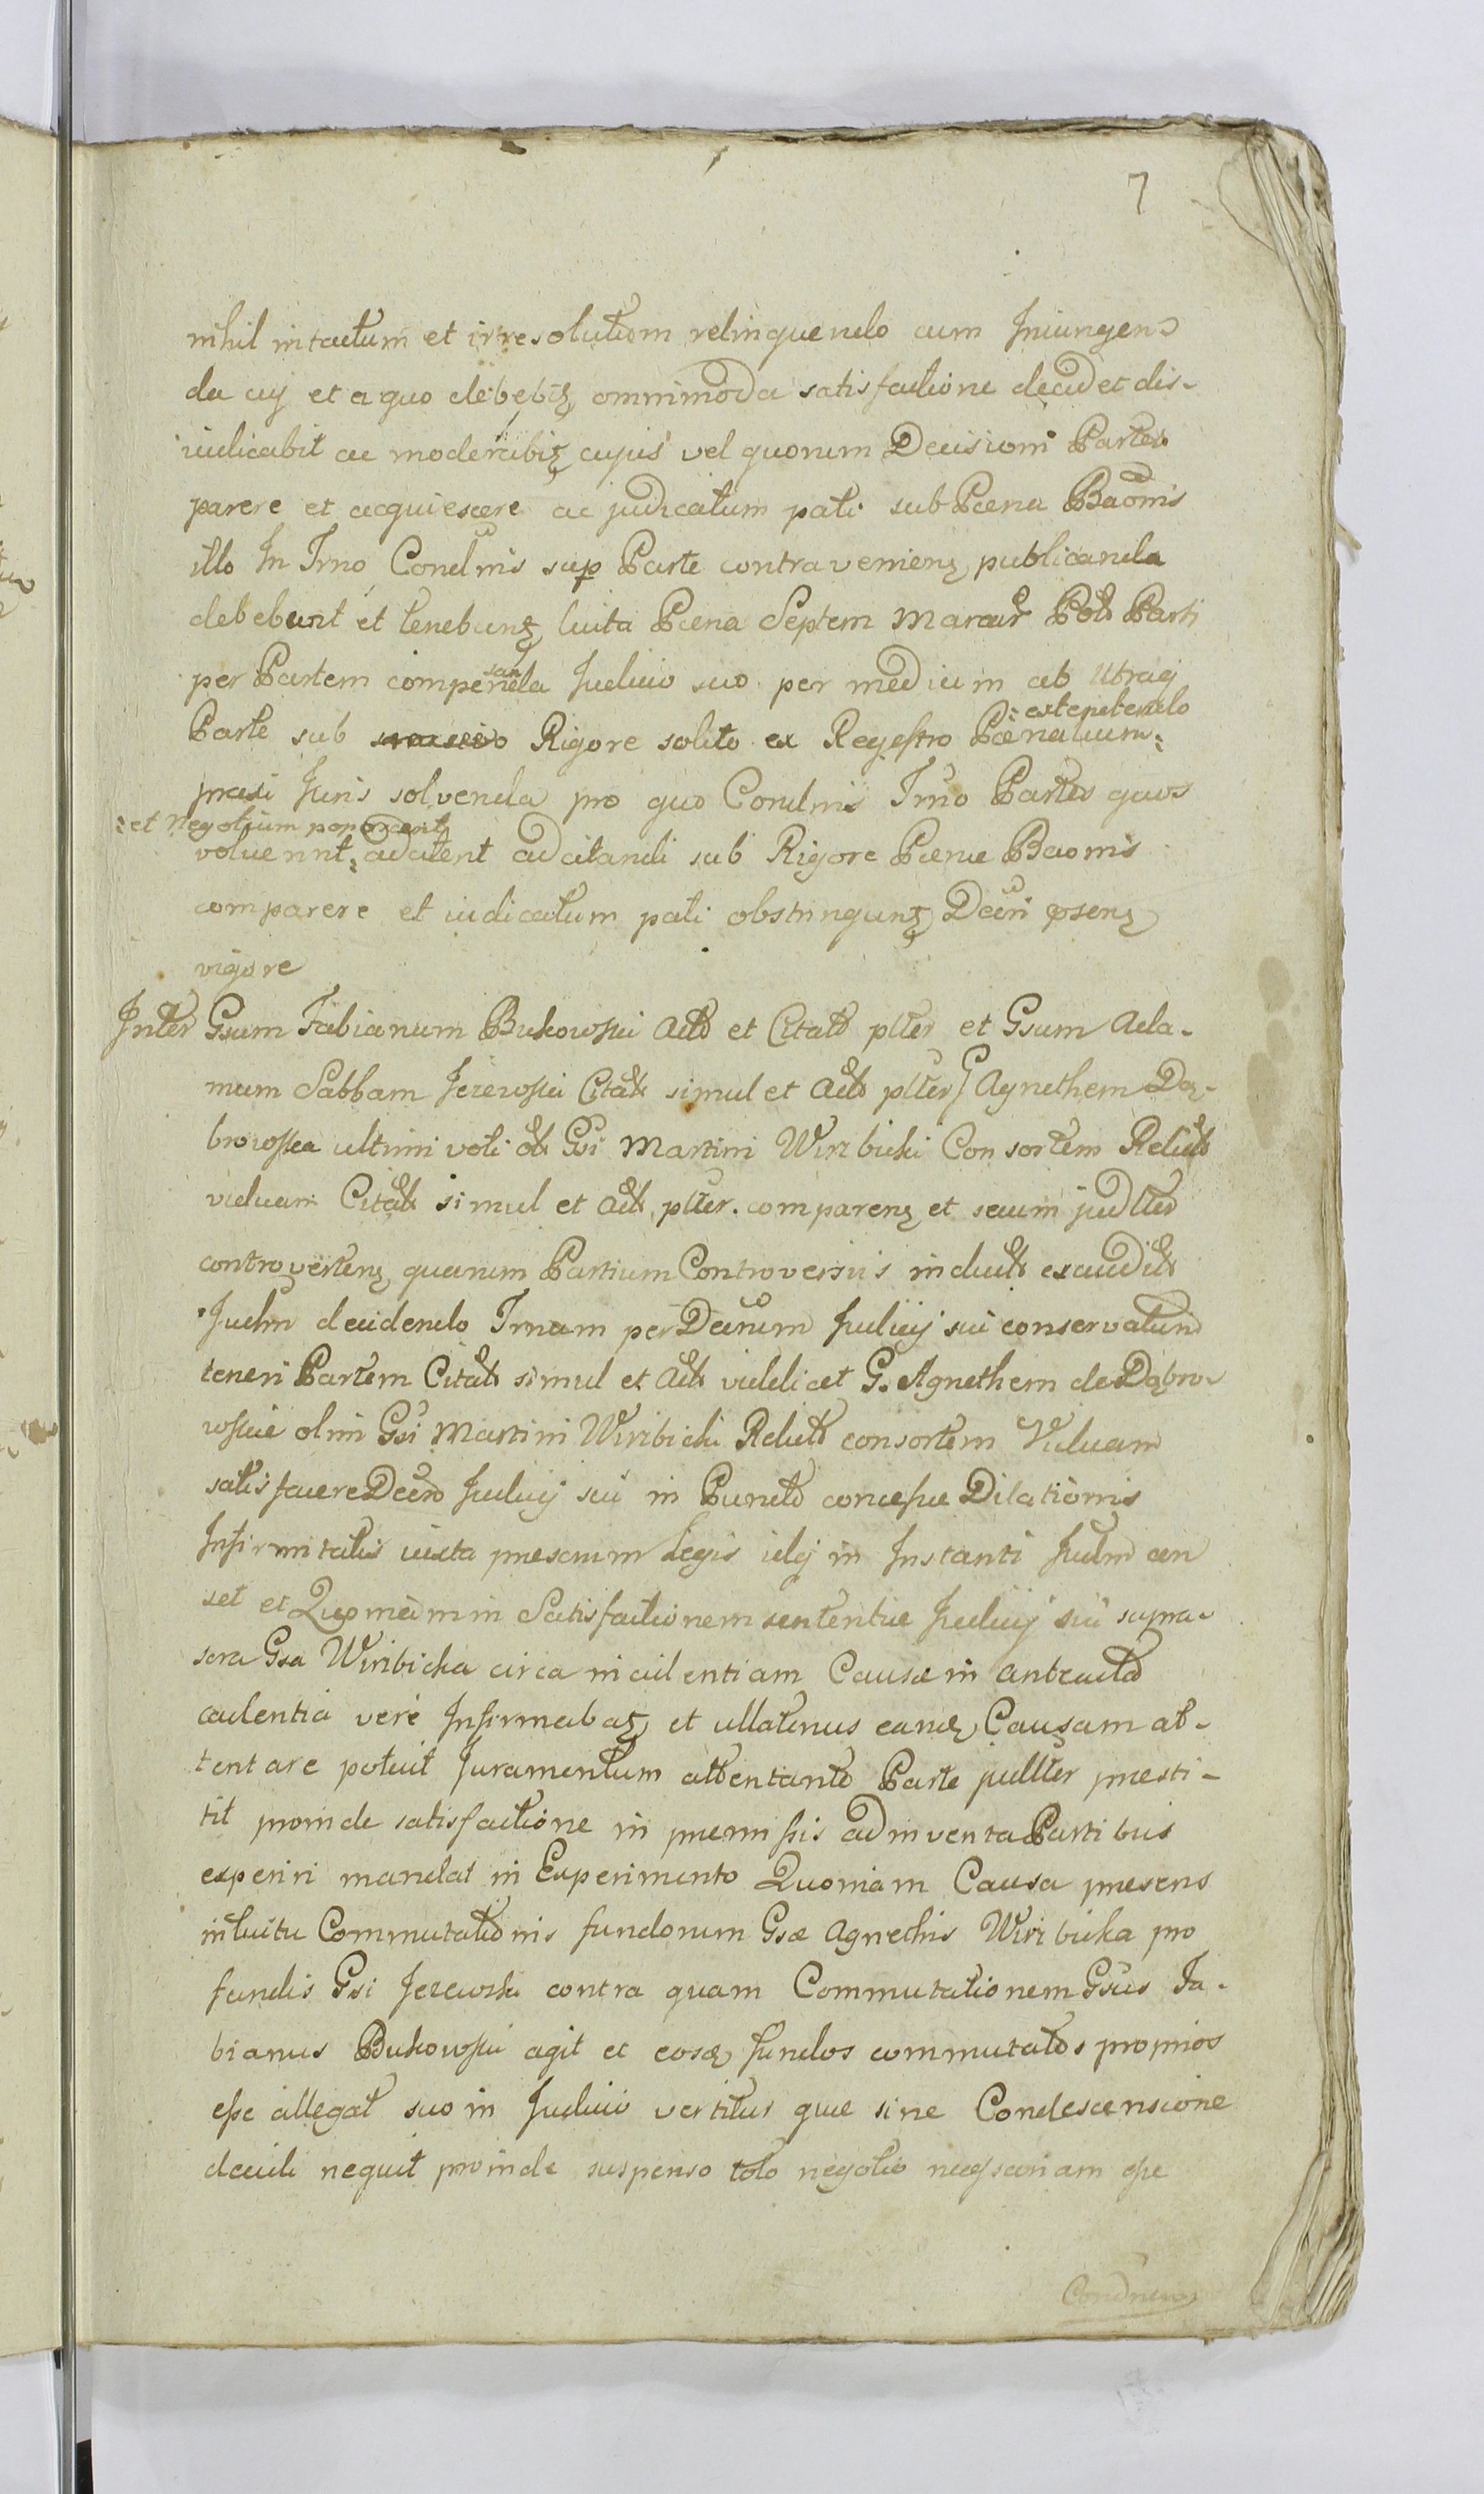 7
nihil intactum et irresolutum relinquendo cum Iniungen-
da cuj et a quo debebitꝫ omnimoda satisfactione decid et dis-
iudicabit ac moderabitꝫ cujus vel quorum Decisioni Partes
parere et acquiescere ac judicatum pati sub Pæna Baõnis
illo In Trno Condnis sup Parte contravenienꝫ publicanda
debebunt et tenebuntꝫ luita Pæna Septem Marcar Polt Parti
per Partem compensanda Judicio suo per medium ab Utraq
Parte sub Rigore solito ex Regestro Pænalium :extentendo
præsi Juris solvenda pro quo Condnis Trno Partes quos
:et Negotium poposcent
voluerint: adcitent adcitandi sub Rigore Pænæ Baonis
comparere et iudicatum pati obstringuntꝫ Decri psenꝫ
vigore
Inter Gsum Fabianum Bukowski Actt et Citatt plter et Gsum Ada-
mum Sabbam Jezewski Citatt simul et Actt plter G Agnethem Dą-
browska ultimi voti olt Gsi Martini Wirzbicki Consortem Relict
viduam Citatt simul et Actt plter. comparenꝫ et secum judlter
controvertenꝫ quarum Partium Controversiis induct exaudit
Judm decidendo Trnam per Decrum Judicij sui conservatum
teneri Partem Citatt simul et Actt videlicet G. Agnethem de Dąbro-
wskie olim Gsi Martini Wirzbicki Relict consortem Viduam
satisfacere Decro Judicij sui in Puncto concessæ Dilationis
Infirmitatis iuxta præscrium Legis idq in Instanti Judm cen
set et Quoniam in Satisfactionem sententiæ Judicij sui supra-
scra Gsa Wirzbicka circa incidentiam Causæ in anteacta
cadentia verè Infirmabatꝫ et ullatenus eandꝫ Causam at-
tentare potuit Juramentum attentante Parte judlter præsti-
tit proinde satisfactione in præmissis adinventa Partibus
experiri mandat in Experimento Quoniam Causa præsens
intuitu Commutationis fundorum Gsæ Agnethis Wirzbicka pro
fundis Gsi Jezewski contra quam Commutationem Gsus Fa-
bianus Bukowski agit et eosdꝫ fundos commutatos proprios
esse allegat suo in Judicio vertitur quæ sine Condescensione
decidi nequit proinde suspenso toto negotio necessariam esse
Condnem